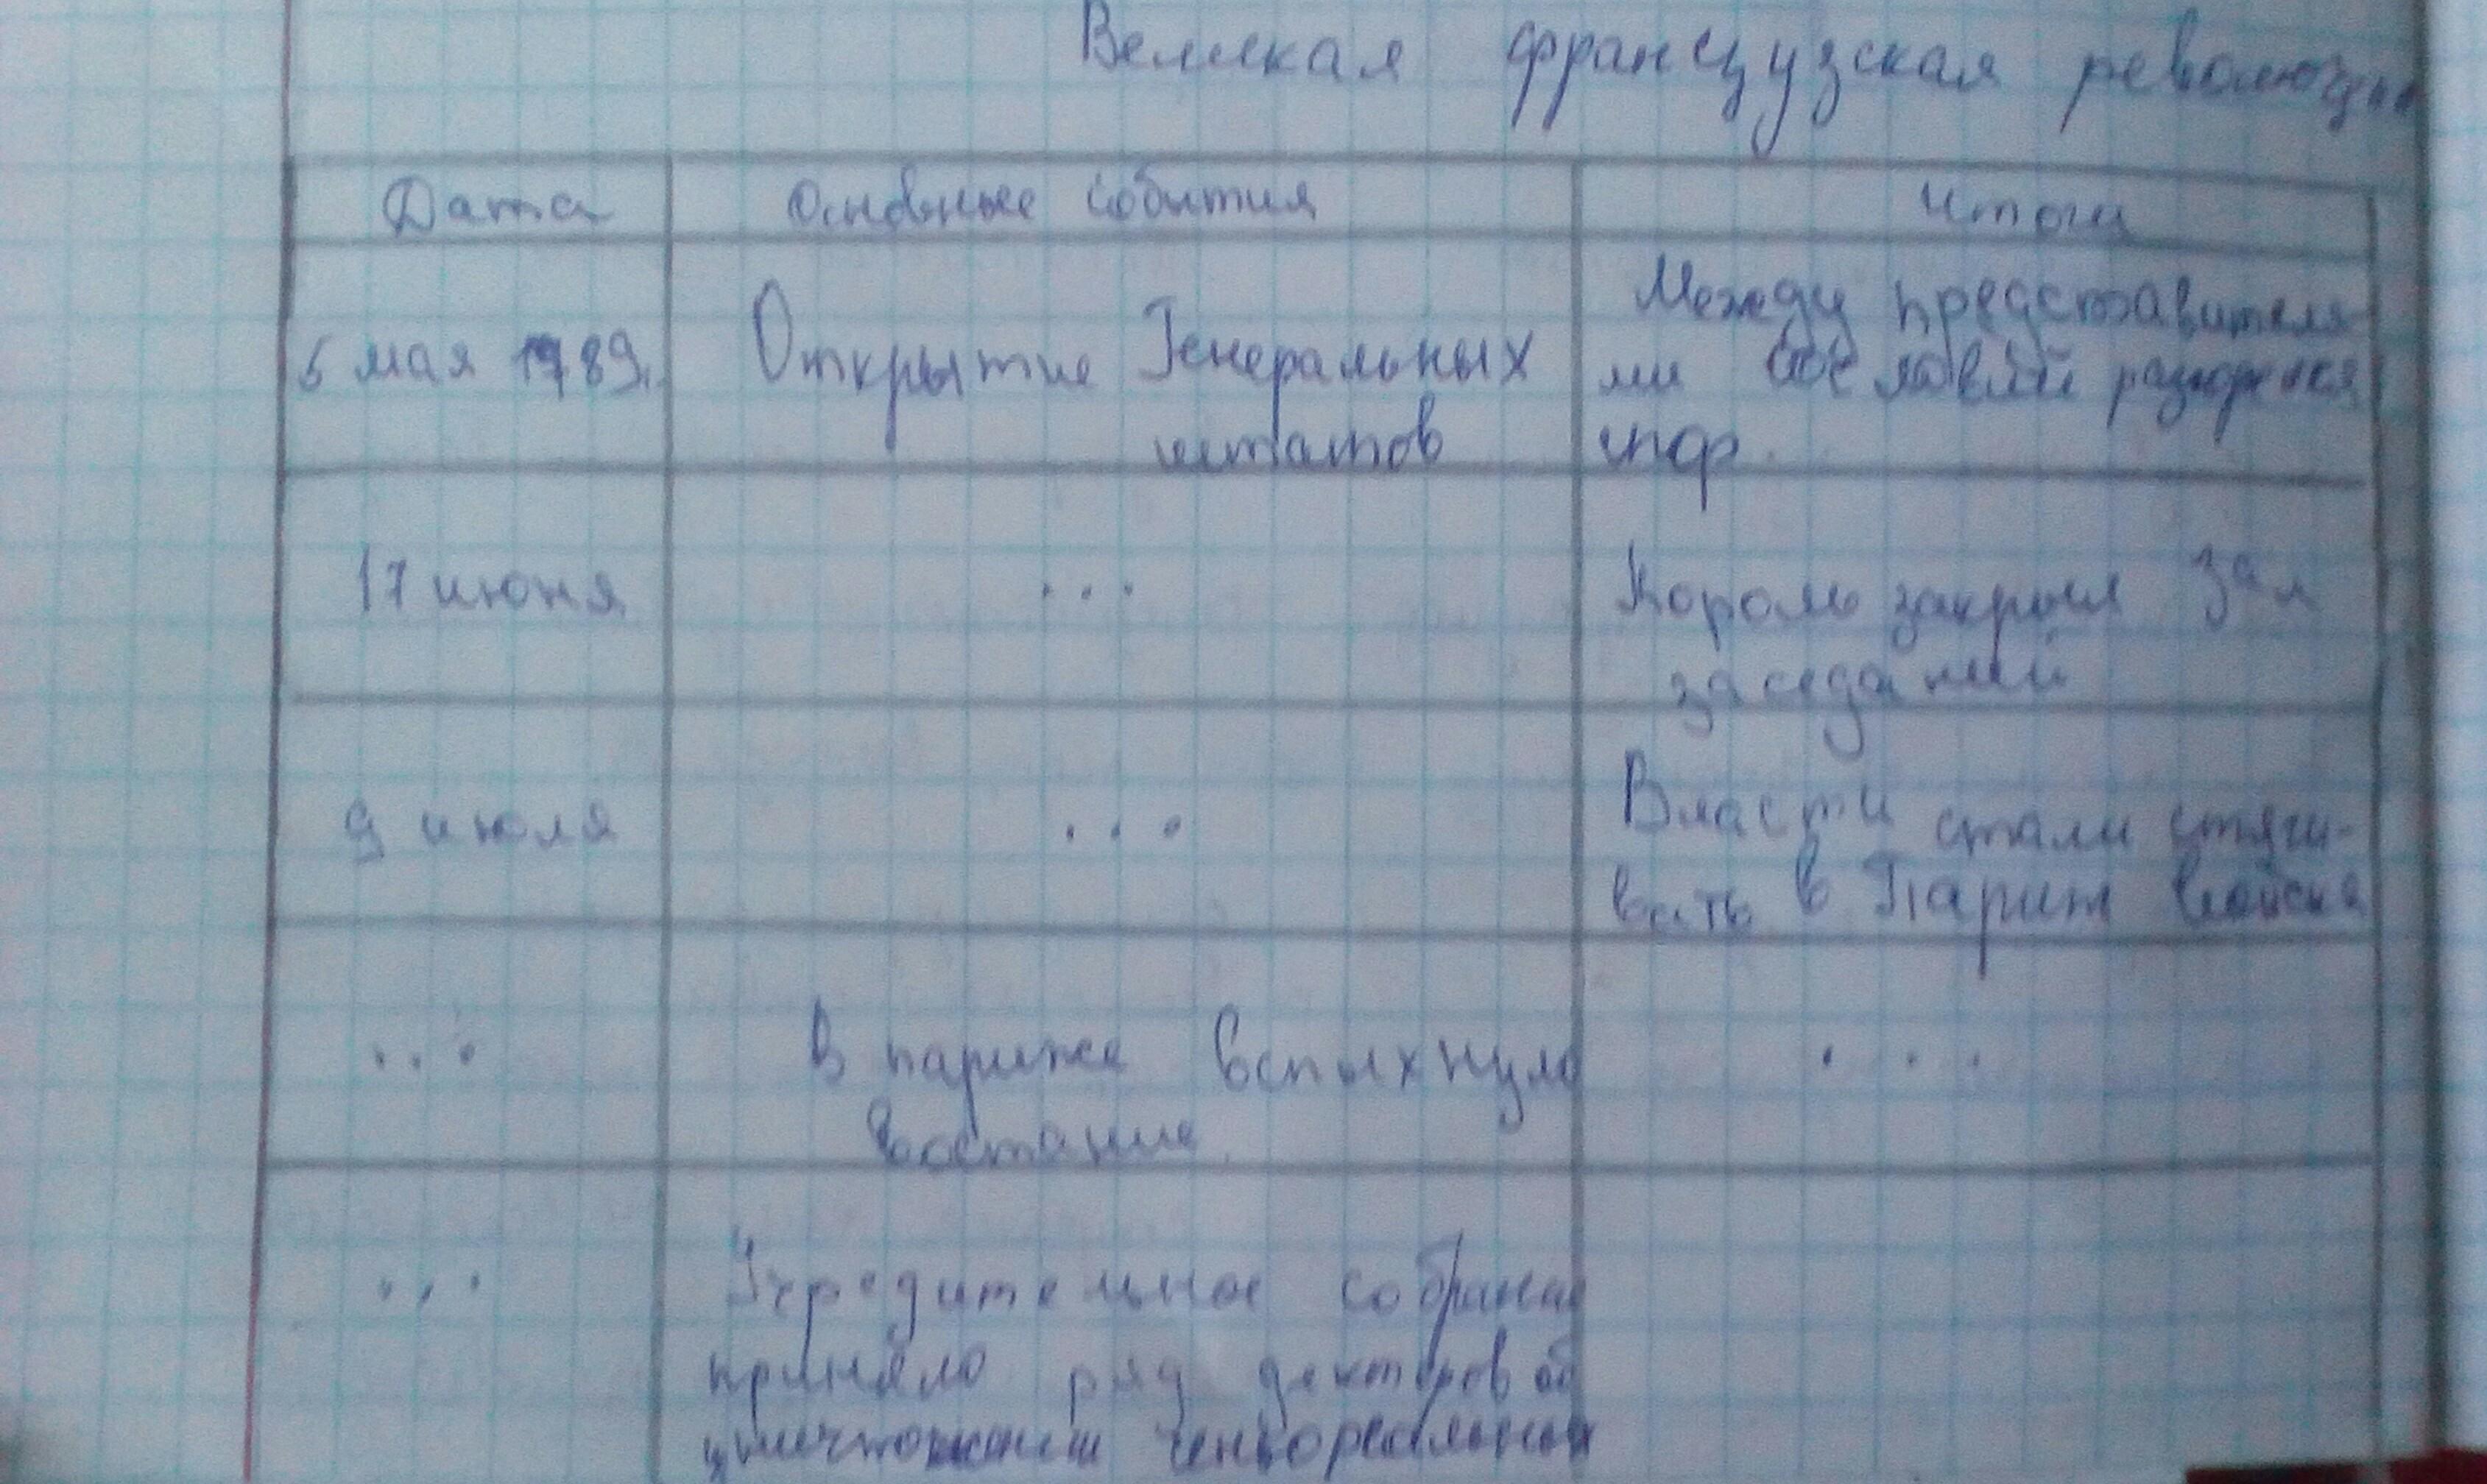 Великая французская революция
Дата Основные события Итоги
5 мая 1789г. Открытие Генеральных штатов Между представителя-
ми сословий разгорелся
спор.
17 июня ... Король закрыл зал
заседаний
9 июля ... Власти стали стяги-
вать в Париж войска
... В париже вспыхнуло ...
востание.
... Учредительное собрание
приняло ряд декторов об
уничтожении